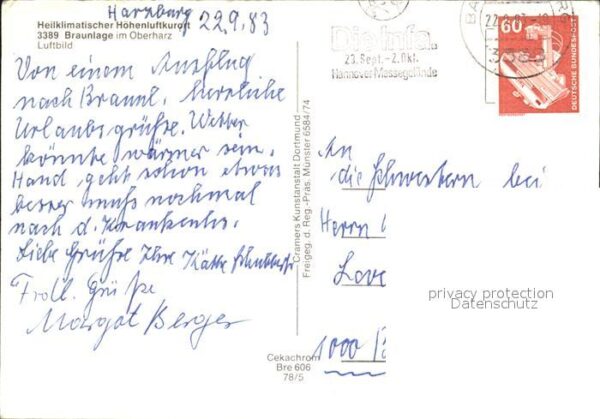 Harzburg
Heilklimatischer Höhenluftkurort
3389 Braunlage im Oberharz
Luftbild
, 22.9.83
Von einem Ausflug
nach Braunl. herrliche
Urlaubsgrüße. Wetter
könnte wärmer sein.
Hand geht schon etwas
besser muß nochmal
nach d. Krankenhs.
Liebe Grüße Ihre Käthe
Frdl. Grüße
Margot Berger
Cramers Kunstanstalt Dortmund
Freigeg. d. Reg.-Präs. Münster 6584/74
Cekachrom
Bre 606
78/5
Die Infa.
23.Sept.-2.Okt.
Hannover Messegelände
3388
60
DEUTSCHE BUNDESPOST
An
die Schwestern bei
Herrn
1000
privacy protection
Datenschutz